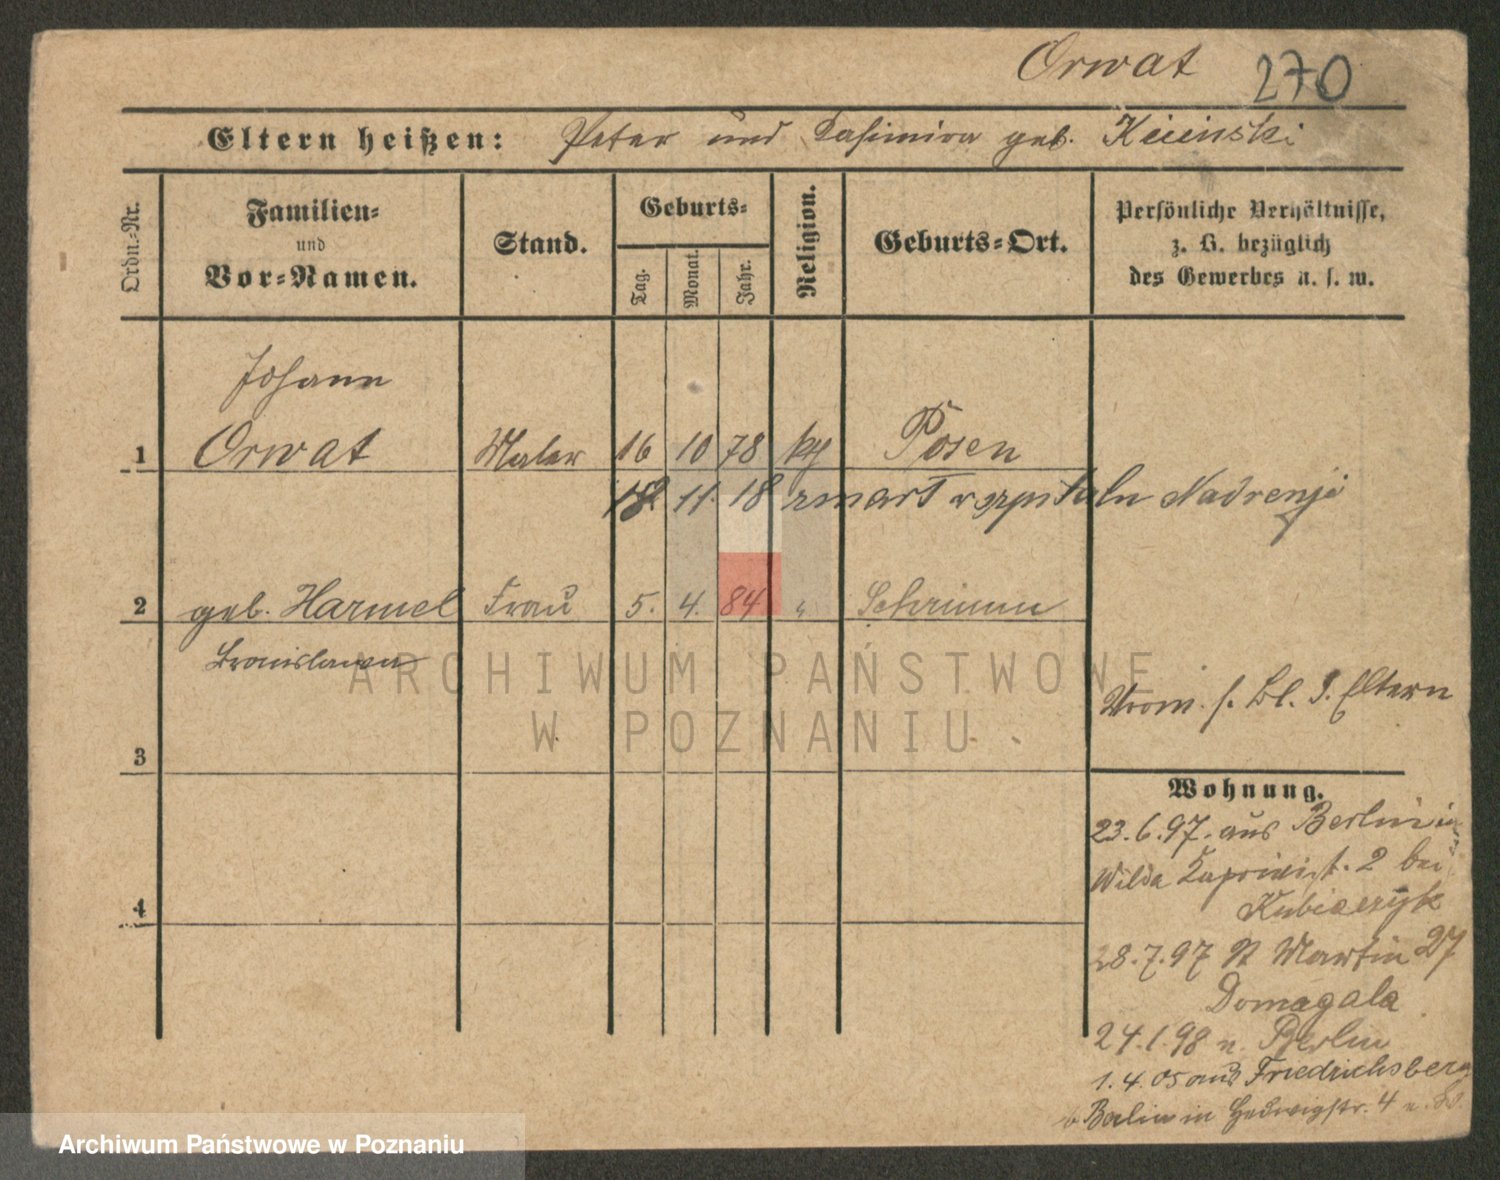 Orwat 270
Eltern heißen: Peter und Kasimira geb.
Ordn.-Nr.
Familien-
und
Vor-Namen.
Stand.
Geburts-
Tag.
Monat.
Jahr.
Religion.
Geburts-Ort.
Persönliche Verhältnisse,
z. B. bezüglich
des Gewerbes u. s. w.
Johann
1 Orwat Maler 16 10 78 kg Posen
18 11. 18 zmarł w szpitalu Nadrenji
2 geb. Harmel Frau 5. 4. 84 " Schrimm
Bronislawa
ARCHIWUM PAŃSTWOWE
W POZNANIU
3
4
s. Bl. d. Eltern
Wohnung.
23.6.97. aus Berlin in
Wilda Kaprivist. 2 bei
Kubiaczyk
28.7.97 St Martin 27
Domagala
24.1.98 n. Berlin
1.4.05 aus Friedrichsberg
b Berlin in Hedwigstr. 4
Archiwum Państwowe w Poznaniu